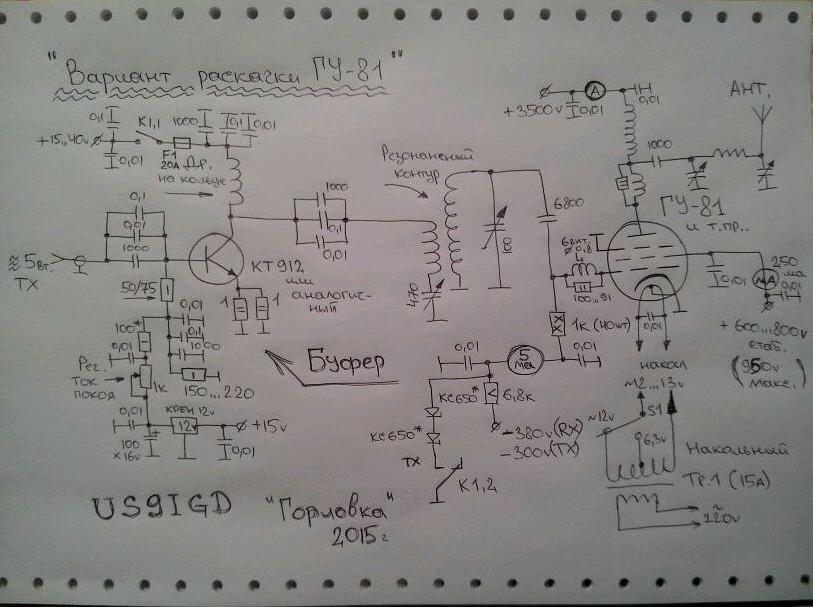 "Вариант раскачки ГУ-81"
0,1
К1,1
1000
0,1
0,01
+15...40v
0,01
F1
20А
Др.
на кольце
0,1
0,01
1000
≈5вт.
TX
50/75
КТ912
или
аналогич-
ный
1
1
1000
0,1
0,01
Резонансный
контур
470
100
6800
А
+3500v
0,01
0,01
АНТ.
1000
ГУ-81
и т.пр..
6вит.
∅0,8
L
100...91
1к (40вт)
0,01
250
ма
мА
0,01
0,01
+600...800v
стаб.
(950v
макс.)
0,01
накал
~12...13v
100*
0,01
Рег.
ток
покоя
1к
0,01
0,1
1000
150...220
0,01
100
×16v
КРЕН 12v
12v
+15v
0,01
Буфер
0,01
5
ма
КС650*
6,8к
КС650*
-380v(RX)
-300v(TX)
TX
К1,2
~12v
S1
6,3v
Накальный
Тр.1 (15А)
~
220v
US9IGD "Горловка"
2015г